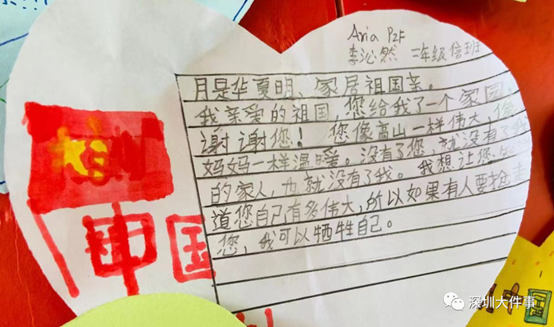 Aria P2F
李沁然 二年级 倍班
月是华夏明、家居祖国亲。
我亲爱的祖国,您给我了一个家园,
谢谢您! 您像高山一样伟大,像
妈妈一样温暖。没有了您,就没有了
的家人,也就没有了我。我想让您
道您自己有多伟大,所以如果有人要抢
您,我可以牺牲自己。
中国
深圳大件事